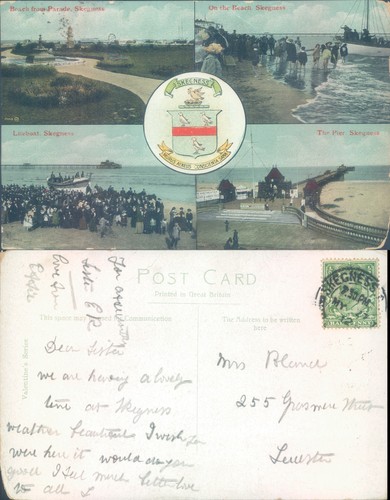 Beach from Parade, Skegness
On the Beach, Skegness
SKEGNESS
Lifeboat, Skegness
The Pier, Skegness
POST CARD
Printed in Great Britain
This space may be used for Communication
The Address to be written here
Valentine's Series
SKEGNESS
HALFPENNY
Dear Sister
we are having a lovely
time at Skegness
weather beautiful I wish you
were here it would do you
good I feel much better love
to all
love from
Effie
Mrs
255 Grasmere
Leicester